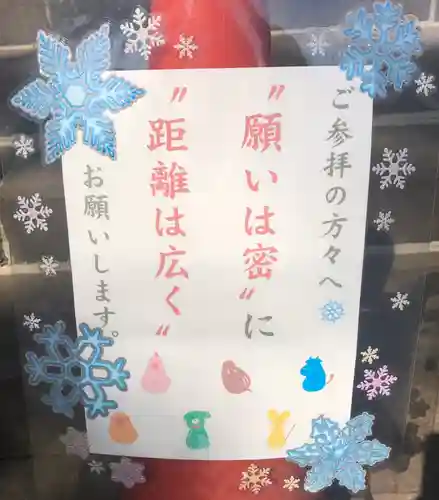 ご参拝の方々へ
"願いは密"に
"距離は広く"
お願いします。